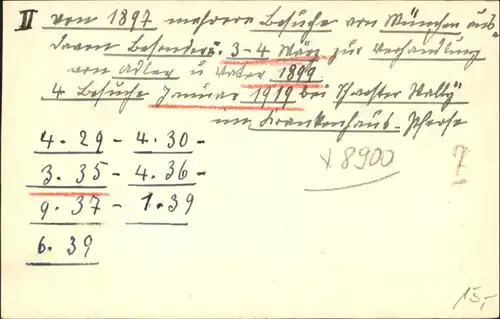 II von 1897 mehrere Besuche von München aus"
davon Besonders. 3-4 März zur Verhandlung
von Adler u Vater 1899.
4 Besuche Januar 1919 bei Schwester Wally"
im Krankenhaus - Pferse
4. 29 - 4. 30 -
3. 35 - 4. 36 -
9. 37 - 1. 39
6. 39
8900
7
15,-